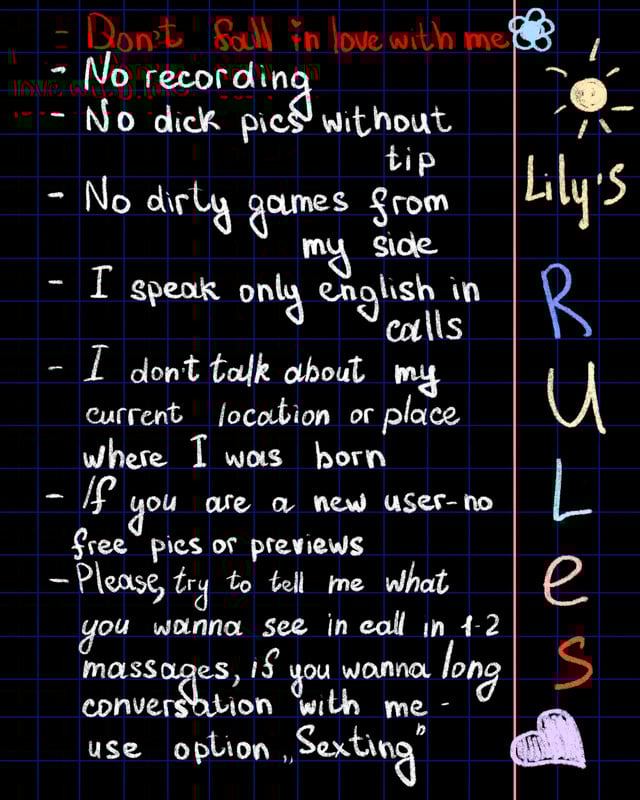 - Don't fall in love with me
- No recording
- No dick pics without
tip
- No dirty games from
my side
- I speak only english in
calls
- I don't talk about my
current location or place
where I was born
- If you are a new user-no
free pics or previews
- Please, try to tell me what
you wanna see in call in 1-2
massages, if you wanna long
conversation with me -
use option „Sexting"
Lily's
RULes